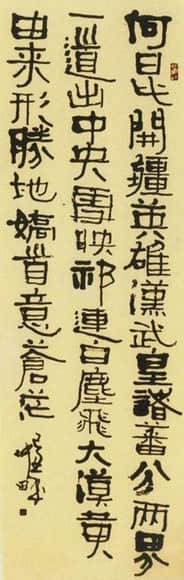 何日此開疆英雄漢武皇諸蕃分兩界
一道出中央雪映祁連白塵飛大漠黄
由来形勝地矯首意蒼茫